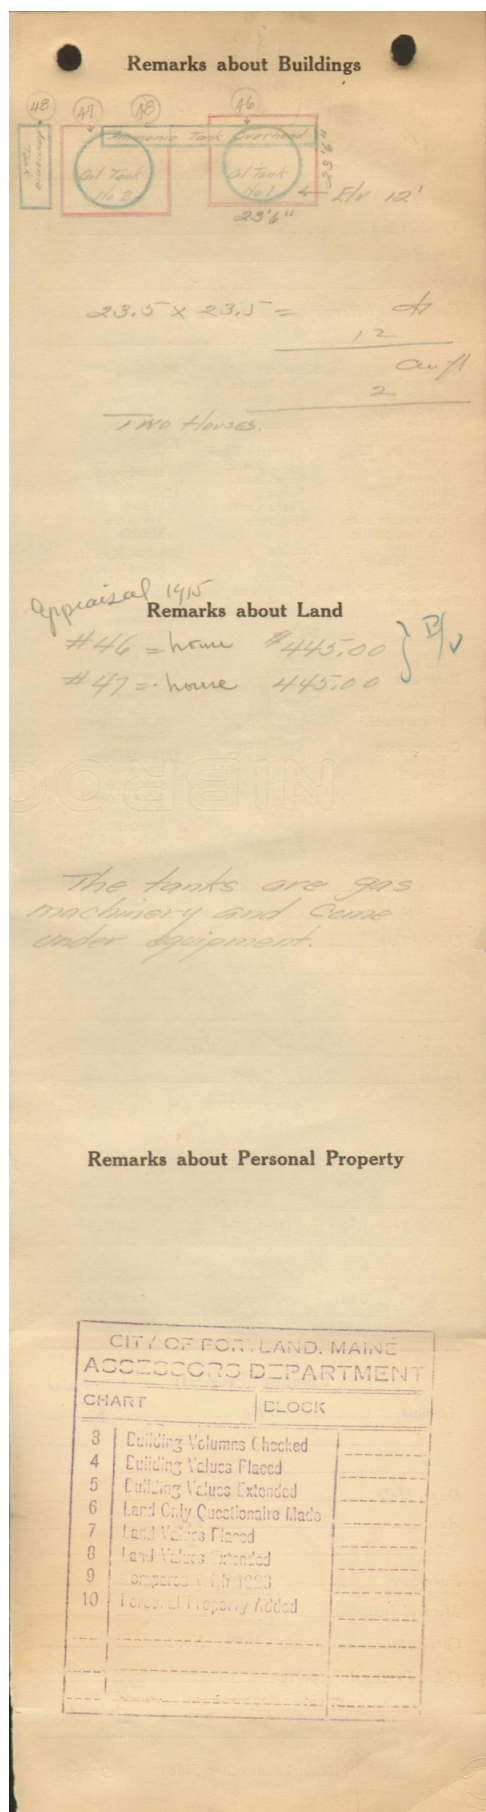 Remarks about Buildings
48 47 48 46
Ammonia Tank Overhead
Ammonia Tank
Oil Tank No 2
Oil Tank No 1
23'6"
← Elv 12'
23'6"
23.5 x 23.5 =
12
cu ft
2
Two Houses.
Appraisal 1915
Remarks about Land
#46 = house $445.00
#47 = house 445.00
NIBROC
The tanks are gas
machinery and come
under equipment.
Remarks about Personal Property
CITY OF PORTLAND, MAINE
ASSESSORS DEPARTMENT
CHART BLOCK
3 Building Volumes Checked
4 Building Values Placed
5 Building Values Extended
6 Land Only Questionaire Made
7 Land Values Placed
8 Land Values Extended
9 Compared With 1923
10 Personal Property Added